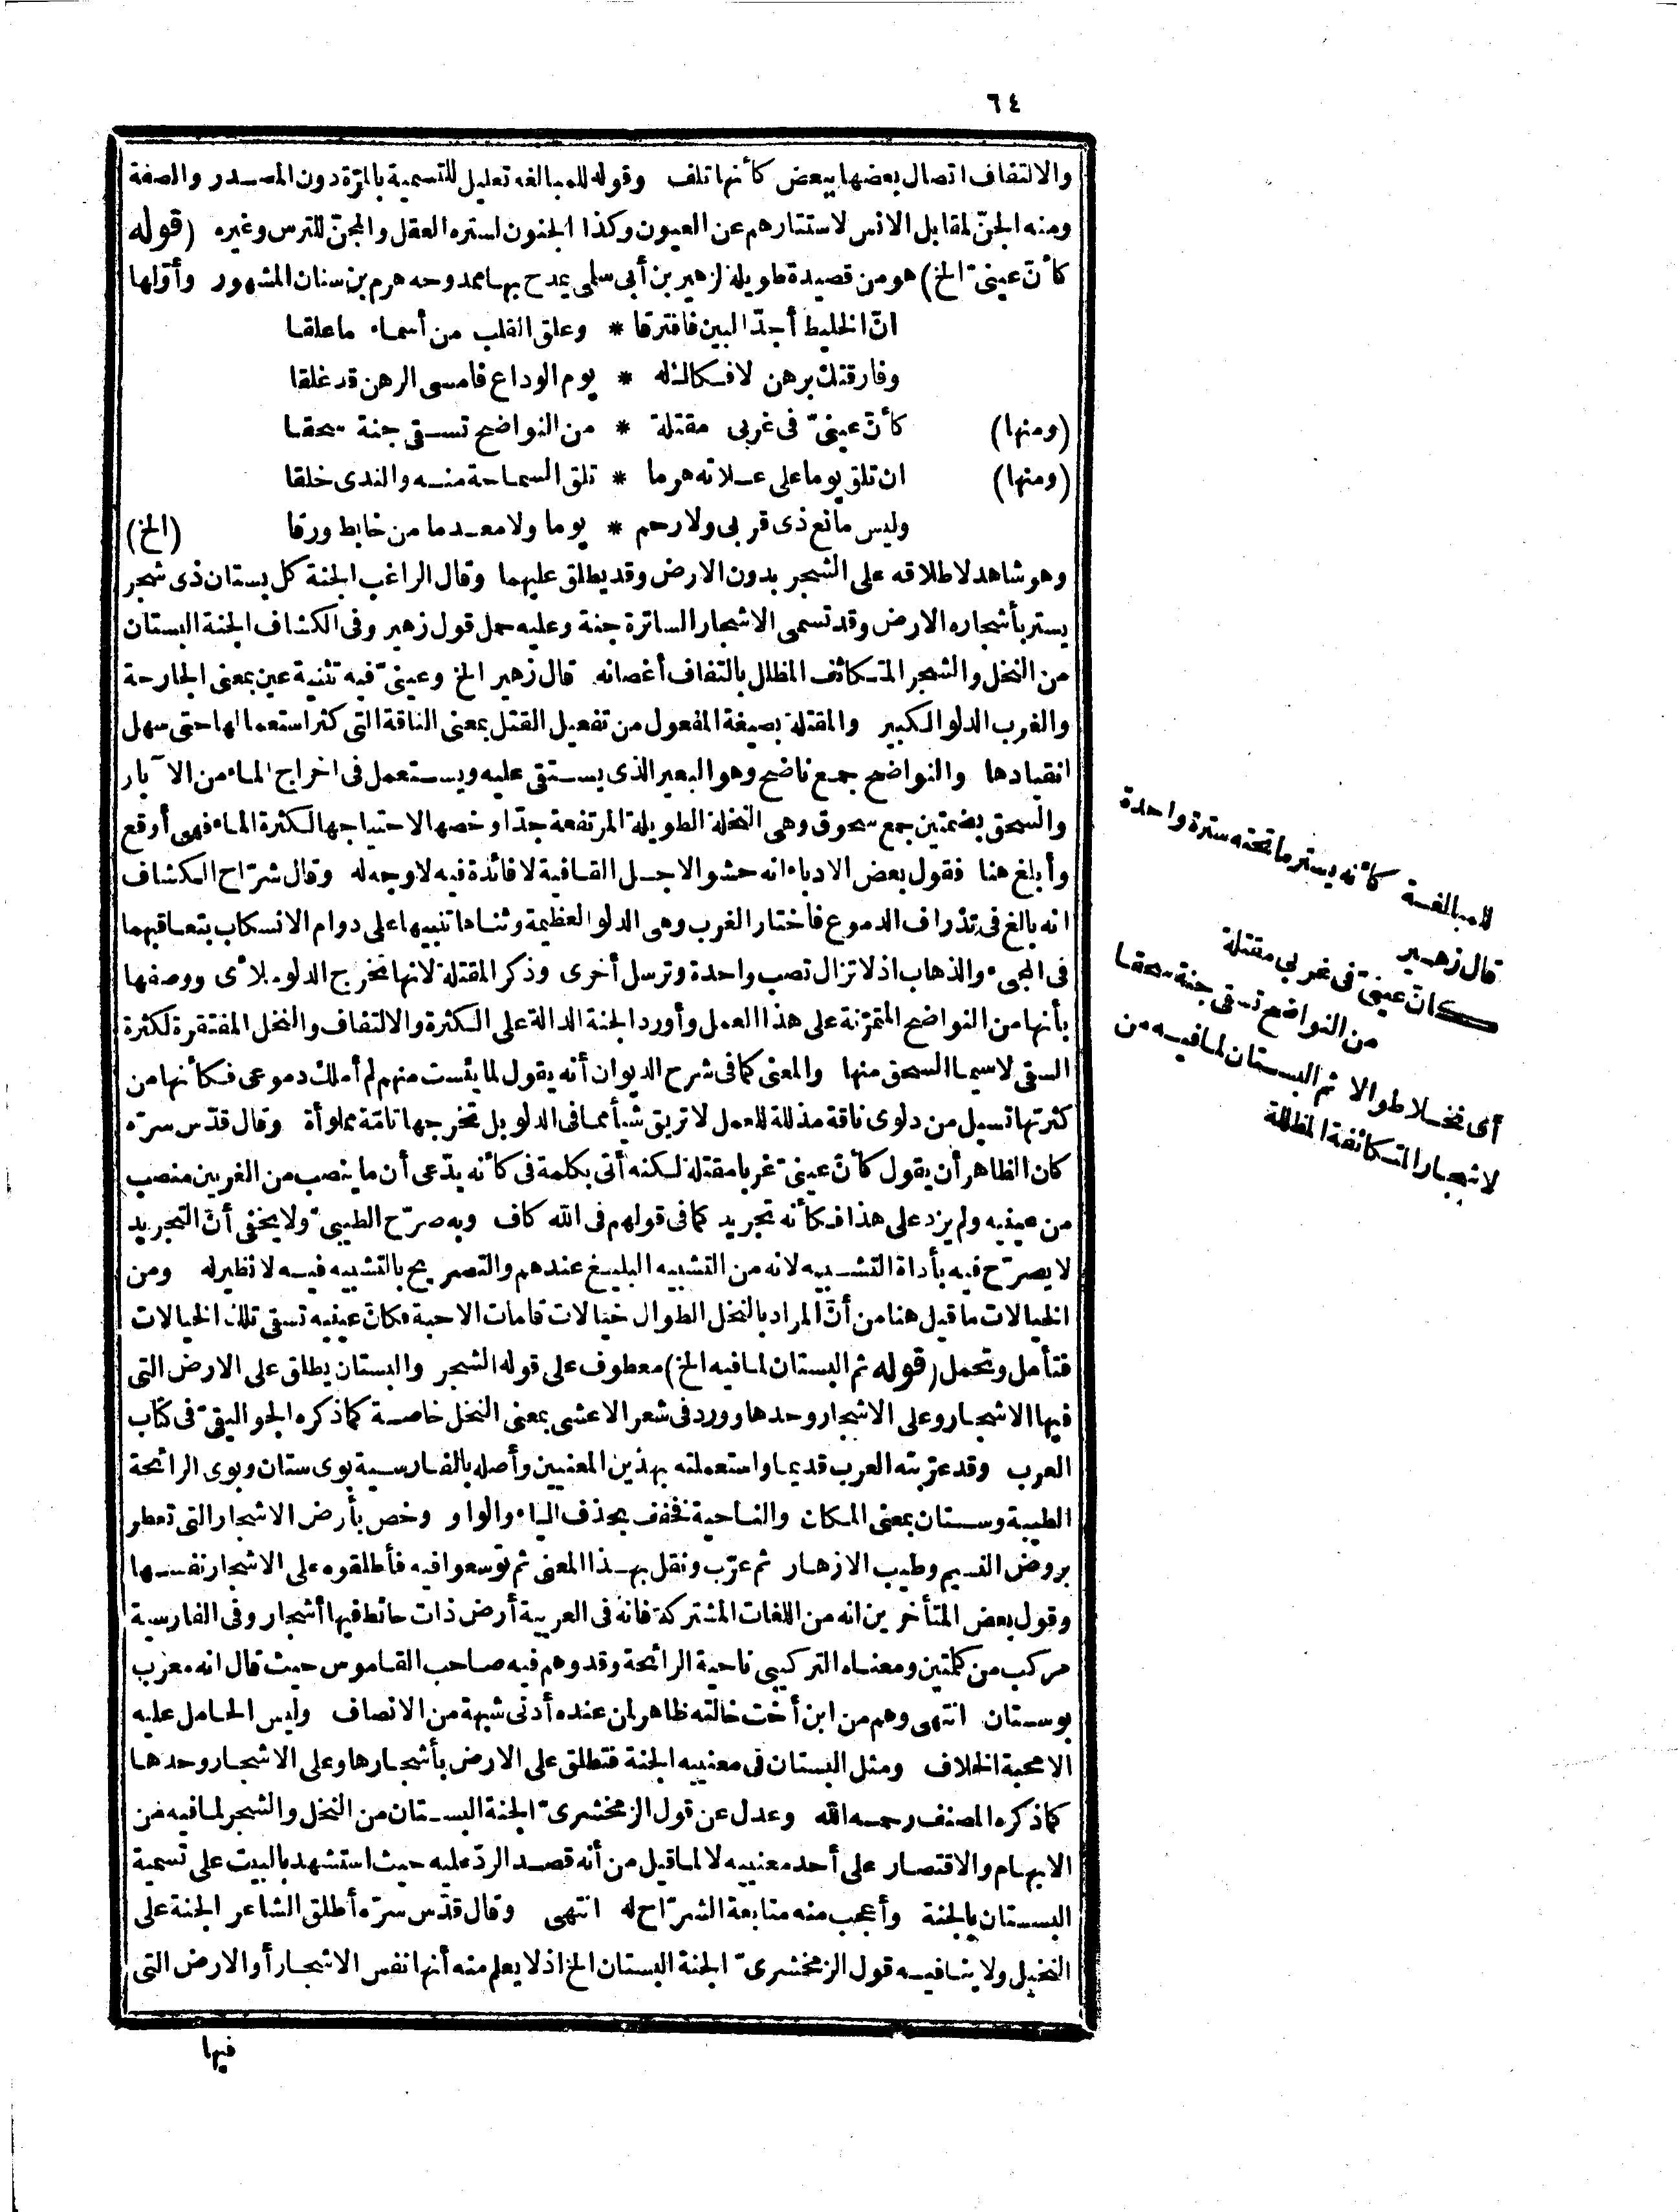 ٦٤
والالتفاف اتصال بعضها ببعض كأنها تلف وقوله للمبالغة تعليل للتسمية بالمرّة دون المصدر والصفة
ومنه الجنّ لمقابل الانس لاستتارهم عن العيون وكذا الجنون لستره العقل والمجنّ للترس وغيره (قوله
كأنّ عينىّ الخ) هو من قصيدة طويلة لزهير بن أبى سلمى يمدح بها ممدوحه هرم بن سنان المشهور وأوّلها
انّ الخليط أجدّ البين فافترقا * وعلق القلب من أسماء ما علقا
وفارقتك برهن لا فكاك له * يوم الوداع فامسى الرهن قد غلقا
(ومنها) كأنّ عينىّ فى غربى مقتلة * من النواضح تسقى جنة سحقا
(ومنها) ان تلق يوما على علاته هرما * تلق السماحة منه والندى خلقا
وليس مانع ذى قربى ولا رحم * يوما ولا معدما من خابط ورقا (الخ)
وهو شاهد لاطلاقه على الشجر بدون الارض وقد يطلق عليهما وقال الراغب الجنة كل بستان ذى شجر
يستر بأشجاره الارض وقد تسمى الاشجار الساترة جنة وعليه حمل قول زهير وفى الكشاف الجنة البستان
من النخل والشجر المتكاثف المظلل بالتفاف أغصانه قال زهير الخ وعينىّ فيه تثنية عين بمعنى الجارحة
والغرب الدلو الكبير والمقتلة بصيغة المفعول من تفعيل القتل بمعنى الناقة التى كثر استعمالها حتى سهل
انقيادها والنواضح جمع ناضح وهو البعير الذى يستقى عليه ويستعمل فى اخراج الماء من الآبار
والسحق بضمتين جمع سحوق وهى النخلة الطويلة المرتفعة جدّا وخصها لاحتياجها لكثرة الماء فهى أوقع
وأبلغ هنا فقول بعض الادباء انه حشو لاجل القافية لا فائدة فيه لا وجه له وقال شرّاح الكشاف
انه بالغ فى تذراف الدموع فاختار الغرب وهى الدلو العظيمة وثناها تنبيها على دوام الانسكاب بتعاقبهما
فى المجىء والذهاب اذ لا تزال تصب واحدة وترسل أخرى وذكر المقتلة لانها تخرج الدلو ملأى ووصفها
بأنها من النواضح المتمرّنة على هذا العمل وأورد الجنة الدالة على الكثرة والالتفاف والنخل المفتقرة لكثرة
السقى لاسيما السحق منها والمعنى كما فى شرح الديوان أنه يقول لما يئست منهم لم أملك دموعى فكأنها من
كثرتها تسيل من دلوى ناقة مذللة للعمل لا تريق شيأ مما فى الدلو بل تخرجها تامّة مملوأة وقال قدّس سرّه
كان الظاهر أن يقول كأنّ عينىّ غربا مقتلة لكنه أتى بكلمة فى كأنه يدّعى أن ما ينصب من الغربين منصب
من عينيه ولم يزد على هذا فكأنه تجريد كما فى قولهم فى الله كاف وبه صرّح الطيبىّ ولا يخفى أنّ التجريد
لا يصرّح فيه بأداة التشبيه لانه من التشبيه البليغ عندهم والتصريح بالتشبيه فيه لا نظير له ومن
الخيالات ما قيل هنا من أنّ المراد بالنخل الطوال خيالات قامات الاحبة فكان عينيه تسقى تلك الخيالات
فتأمل وتحمل (قوله ثم البستان لما فيه الخ) معطوف على قوله الشجر والبستان يطلق على الارض التى
فيها الاشجار وعلى الاشجار وحدها وورد فى شعر الاعشى بمعنى النخل خاصة كما ذكره الجواليقىّ فى كتاب
العرب وقد عرّبته العرب قديما واستعملته بهذين المعنيين وأصله بالفارسية بوى ستان وبوى الرائحة
الطيبة وستان بمعنى المكان والناحية فخفف بحذف الياء والواو وخص بأرض الاشجار التى تعطر
بروض النسيم وطيب الازهار ثم عرّب ونقل بهذا المعنى ثم توسعوا فيه فأطلقوه على الاشجار نفسها
وقول بعض المتأخرين انه من اللغات المشتركة فانه فى العربية أرض ذات حائط فيها أشجار وفى الفارسية
مركب من كلمتين ومعناه التركيبى ناحية الرائحة وقد وهم فيه صاحب القاموس حيث قال انه معرّب
بوستان انتهى وهم من ابن أخت خالته ظاهر لمن عنده أدنى شبهة من الانصاف وليس الحامل عليه
الا محبة الخلاف ومثل البستان فى معنييه الجنة فتطلق على الارض بأشجارها وعلى الاشجار وحدها
كما ذكره المصنف رحمه الله وعدل عن قول الزمخشرىّ الجنة البستان من النخل والشجر لما فيه من
الابهام والاقتصار على أحد معنييه لا لما قيل من أنه قصد الردّ عليه حيث استشهد بالبيت على تسمية
البستان بالجنة وأعجب منه متابعة الشرّاح له انتهى وقال قدّس سرّه أطلق الشاعر الجنة على
النخيل ولا ينافيه قول الزمخشرىّ الجنة البستان الخ اذ لا يعلم منه أنها نفس الاشجار أو الارض التى
فيها
للمبالغة كأنه يستر ما تحته سترة واحدة
قال زهير
كانّ عينىّ فى غربى مقتلة
من النواضح تسقى جنة سحقا
أى نخلا طوالا ثم البستان لما فيه من
لاشجار المتكاثفة المظللة